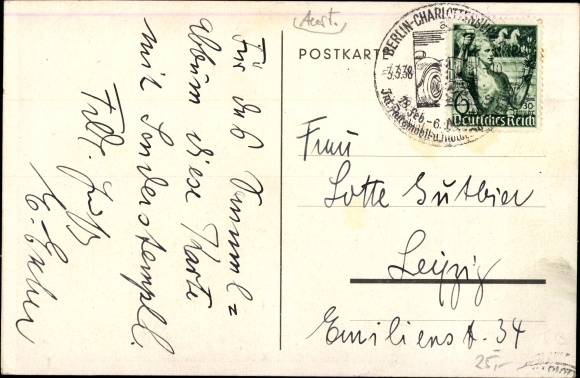 Für das Sammel=
album diese Karte
mit Sonderstempel.
Frdl. Gruß
POSTKARTE
BERLIN-CHARLOTTENBURG
3.3.38
18. Feb.-6.
Int. Automobil-u. Motor
6
Deutsches Reich
Frau
Lotte Gutbier
Leipzig
Emilienst. 34
25,-